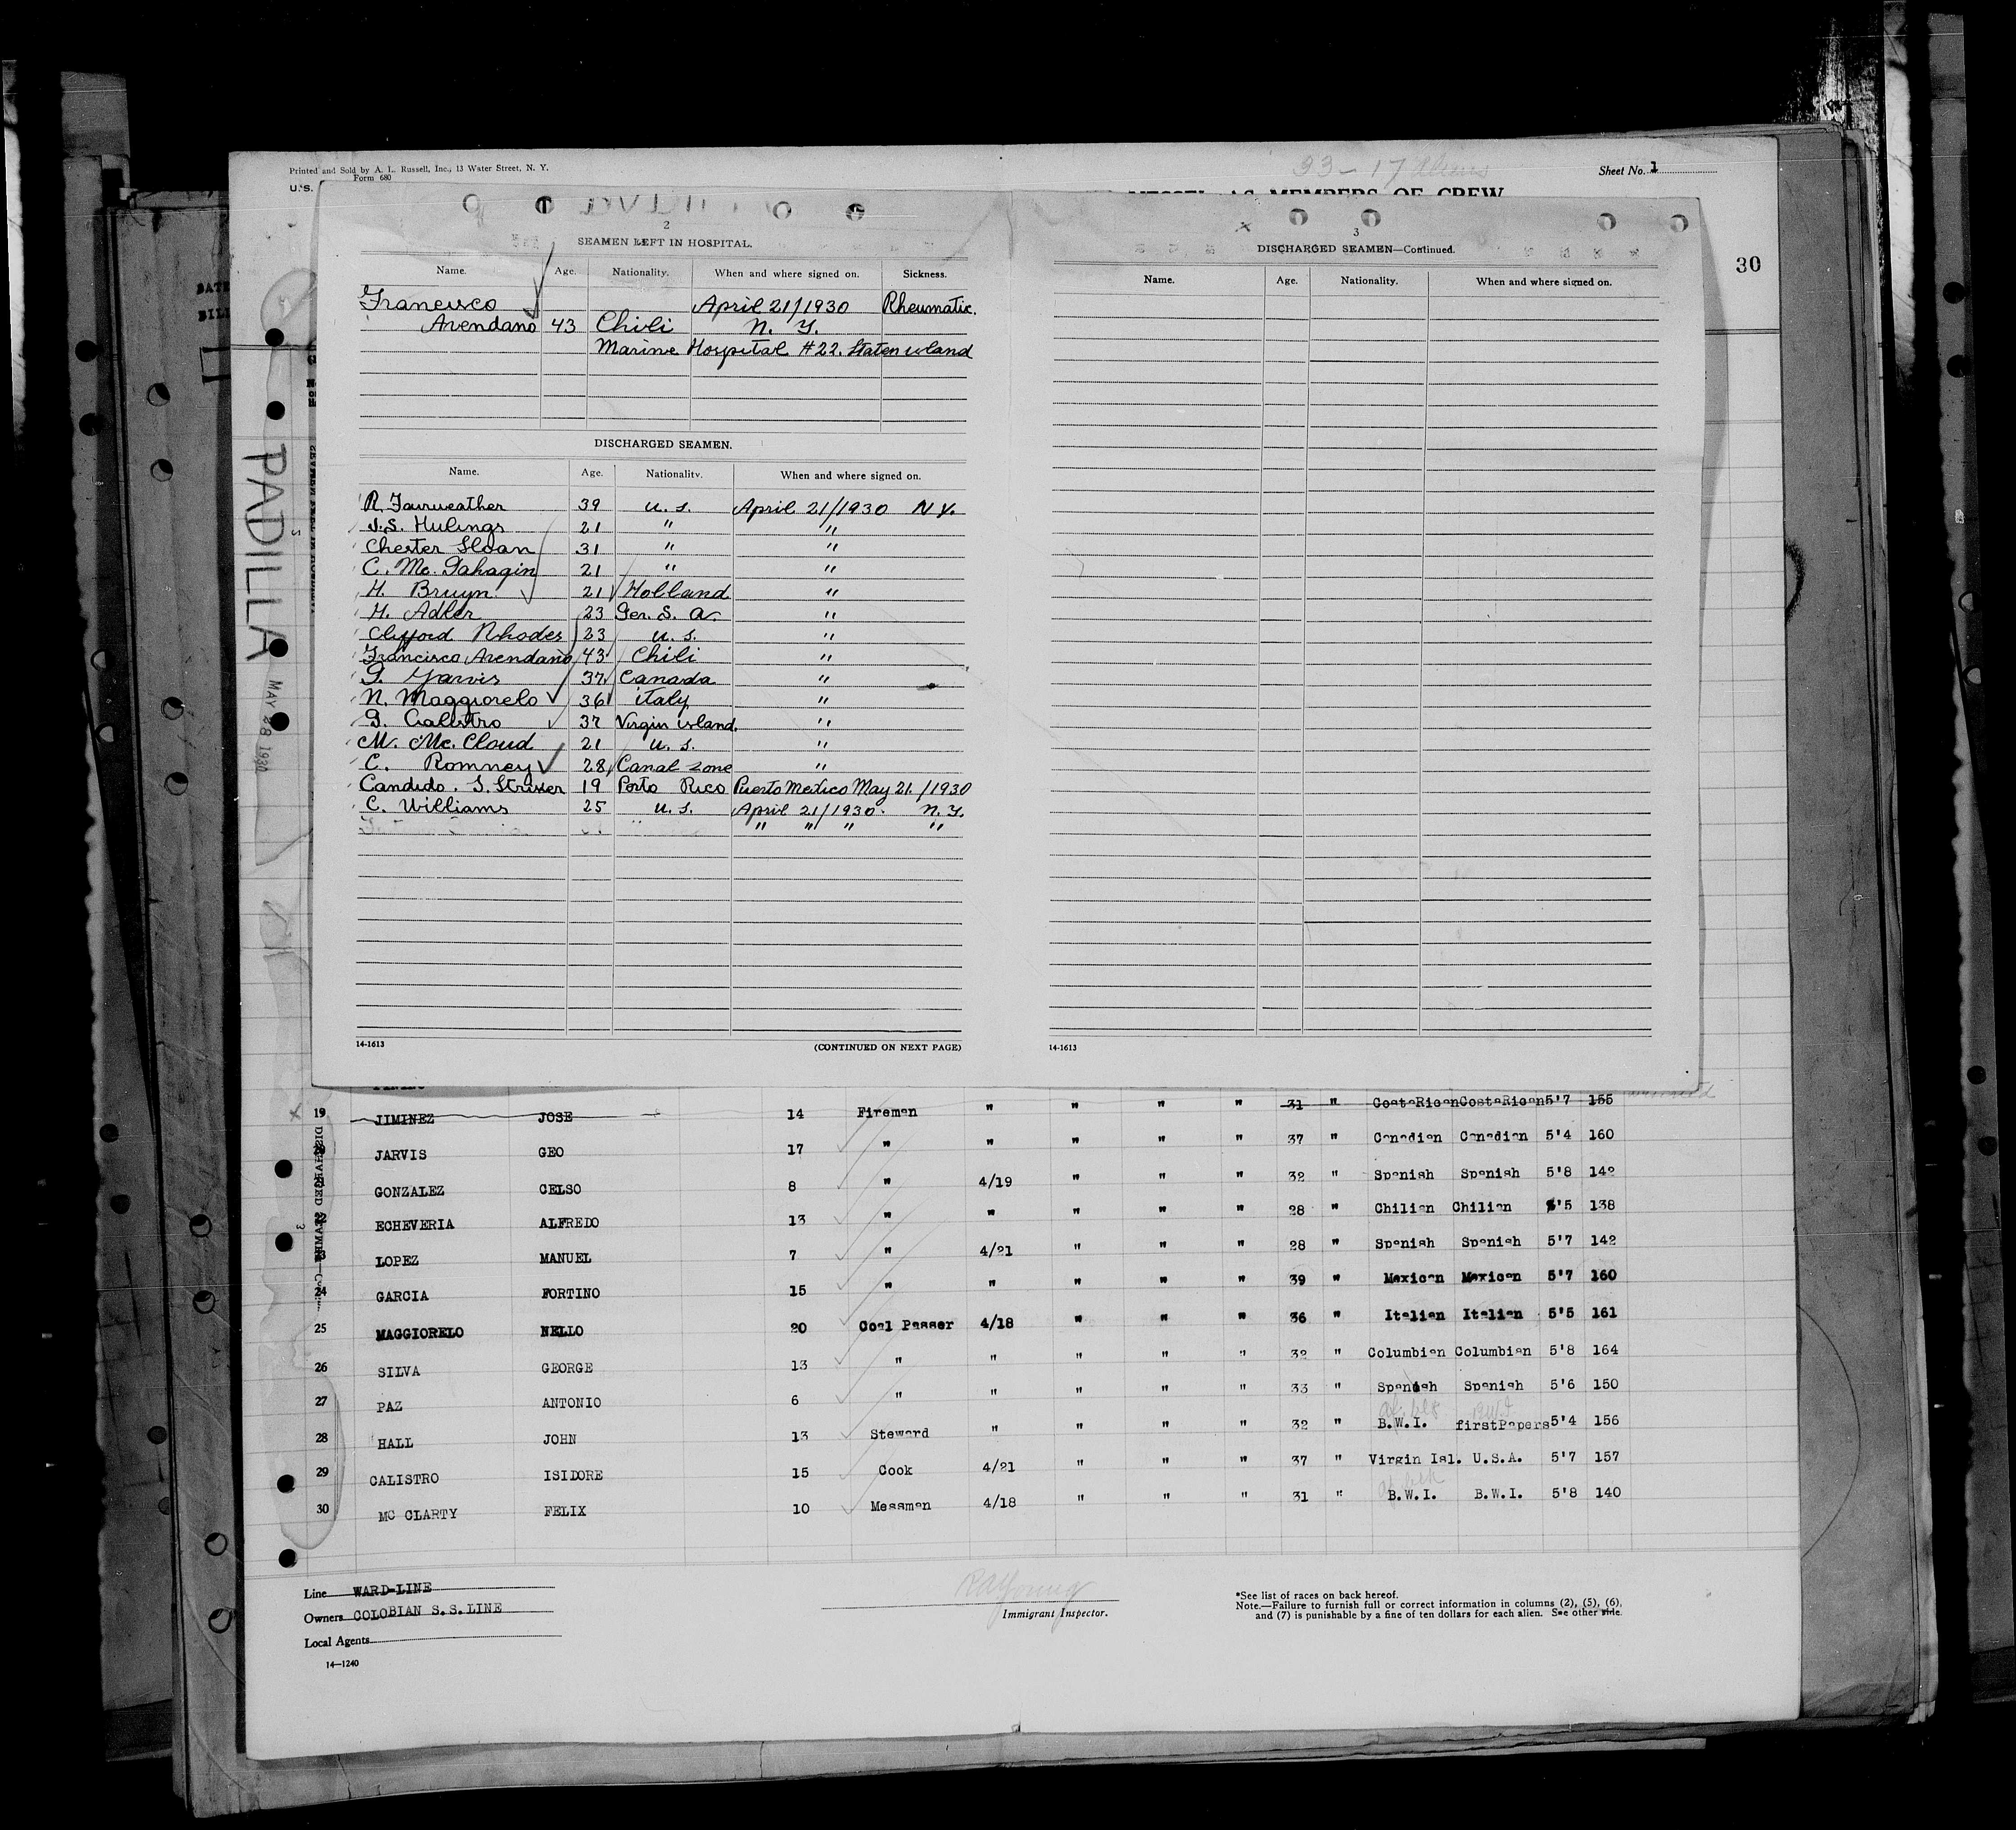 Printed and Sold by A. L. Russell, Inc., 13 Water Street, N. Y.
Form 680
U.S.
33-17 Aliens
Sheet No. 1
VESSEL AS MEMBERS OF CREW
30
PADILLA
MAY 28 1930
2
SEAMEN LEFT IN HOSPITAL.
Name. Age. Nationality. When and where signed on. Sickness.
Francisco April 21/1930 Rheumatic.
Arendano 43 Chili N. Y.
Marine Hospital #22. Staten island
DISCHARGED SEAMEN.
Name. Age. Nationality. When and where signed on.
R. Fairweather 39 U. S. April 21/1930 N Y.
J.S. Hulings 21 " "
Chester Sloan 31 " "
C. Mc. Gahagin 21 " "
H. Bruyn 21 Holland "
H. Adler 23 Ger. S. A. "
Clifford Rhodes 23 U. S. "
Francisco Arendano 43 Chili "
G. Yarvis 37 Canada "
N. Maggiorelo 36 italy "
I. Calistro 37 Virgin island. "
M. Mc. Cloud 21 U. S. "
C. Romney 28 Canal zone "
Candido. S. Strixer 19 Porto Rico Puerto Mexico May 21 /1930
C. Williams 25 U. S. April 21/1930. N. Y.
" " " "
14-1613
(CONTINUED ON NEXT PAGE)
3
DISCHARGED SEAMEN—Continued.
Name. Age. Nationality. When and where signed on.
14-1613
19 JIMINEZ JOSE 14 Fireman " " " " 31 " CostaRican CostaRican 5'7 155
JARVIS GEO 17 " " " " " 37 " Canadian Canadian 5'4 160
GONZALEZ CELSO 8 " 4/19 " " " 32 " Spanish Spanish 5'8 142
ECHEVERIA ALFREDO 13 " " " " " 28 " Chilian Chilian 5'5 138
LOPEZ MANUEL 7 " 4/21 " " " 28 " Spanish Spanish 5'7 142
24 GARCIA FORTINO 15 " " " " " 39 " Mexican Mexican 5'7 160
25 MAGGIORELO NELLO 20 Coal Passer 4/18 " " " 36 " Italian Italian 5'5 161
26 SILVA GEORGE 13 " " " " " 32 " Columbian Columbian 5'8 164
27 PAZ ANTONIO 6 " " " " " 33 " Spanish Spanish 5'6 150
28 HALL JOHN 13 Steward " " " " 32 " B.W.I. firstPapers 5'4 156
29 CALISTRO ISIDORE 15 Cook 4/21 " " " 37 " Virgin Isl. U.S.A. 5'7 157
30 MC CLARTY FELIX 10 Messman 4/18 " " " 31 " B.W.I. B.W.I. 5'8 140
DISCHARGED SEAMEN
Line WARD-LINE
Owners COLOBIAN S.S.LINE
Local Agents
14—1240
R A Young
Immigrant Inspector.
*See list of races on back hereof.
Note.—Failure to furnish full or correct information in columns (2), (5), (6),
and (7) is punishable by a fine of ten dollars for each alien. See other side.